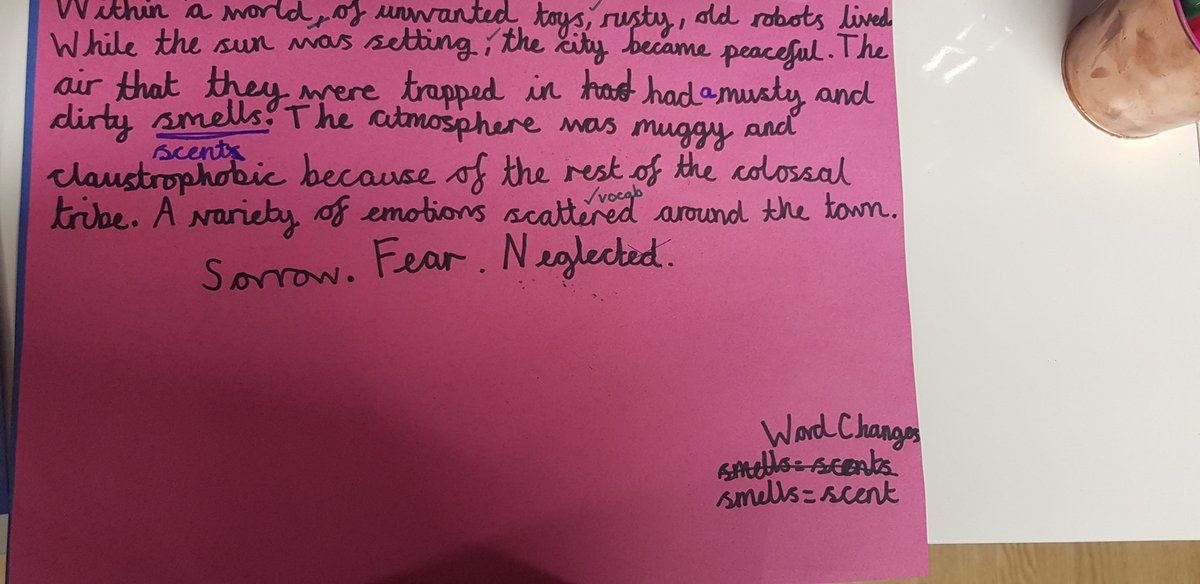 Within a world, of unwanted toys, rusty, old robots lived
While the sun was setting, the city became peaceful. The
air that they were trapped in had had a musty and
dirty smells. The atmosphere was muggy and
scents
claustrophobic because of the rest of the colossal
✓vocab
tribe. A variety of emotions scattered around the town.
Sorrow. Fear. Neglected.
Word Changes
smells=scents
smells=scent